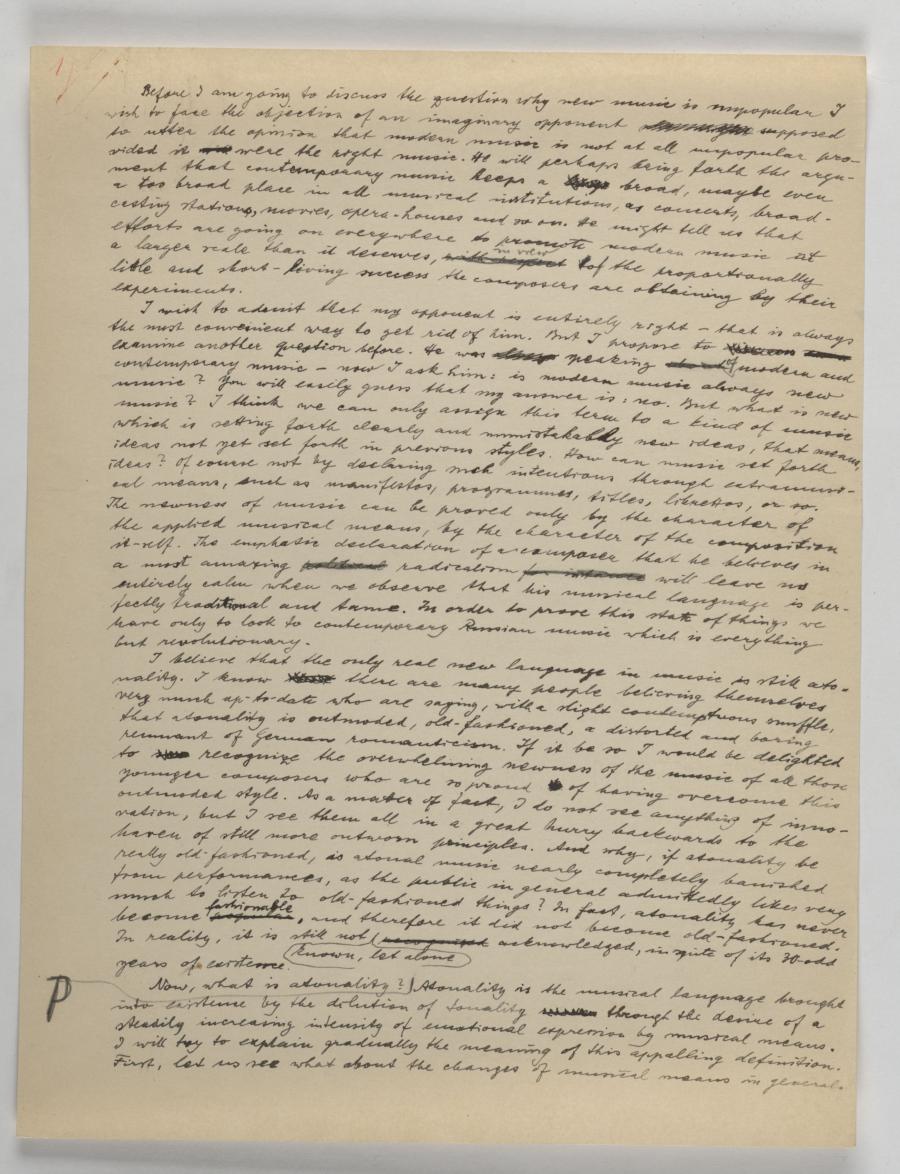 Before I am going to discuss the question why new music is unpopular I
wish to face the objection of an imaginary opponent supposed
to utter the opinion that modern music is not at all unpopular pro-
vided it were the right music. He will perhaps bring forth the argu-
ment that contemporary music keeps a broad, maybe even
a too broad place in all musical institutions, as concerts, broad-
casting stations, movies, opera-houses and so on. He might tell us that
efforts are going on everywhere to promote modern music at
a larger scale than it deserves, with respect in view to of the proportionally
little and short-living success the composers are obtaining by their
experiments.
I wish to admit that my opponent is entirely right – that is always
the most convenient way to get rid of him. But I propose to
examine another question before. He was speaking about of modern and
contemporary music – now I ask him: is modern music always new
music? You will easily guess that my answer is: no. But what is new
music? I think we can only assign this term to a kind of music
which is setting forth clearly and unmistakably new ideas, that means,
ideas not yet set forth in previous styles. How can music set forth
ideas? Of course not by declaring such intentions through extramusi-
cal means, such as manifestos, programmes, titles, librettos, or so.
The newness of music can be proved only by the character of
the applied musical means, by the character of the composition
it-self. The emphatic declaration of a composer that he believes in
a most amazing political radicalism for instance will leave us
entirely calm when we observe that his musical language is per-
fectly traditional and tame. In order to prove this state of things we
have only to look to contemporary Russian music which is everything
but revolutionary.
I believe that the only real new language in music is still ato-
nality. I know there are many people believing themselves
very much up-to-date who are saying, with a slight contemptuous snuffle,
that atonality is outmoded, old-fashioned, a distorted and boring
remnant of German romanticism. If it be so I would be delighted
to recognize the overwhelming newness of the music of all those
younger composers who are so proud of having overcome this
outmoded style. As a matter of fact, I do not see anything of inno-
vation, but I see them all in a great hurry backwards to the
haven of still more outworn principles. And why, if atonality be
really old-fashioned, is atonal music nearly completely banished
from performances, as the public in general admittedly likes very
much to listen to old-fashioned things? In fact, atonality has never
become popular fashionable, and therefore it did not become old-fashioned.
In reality, it is still not recognized acknowledged, in spite of its 30-odd
years of existence. known, let alone
P Now, what is atonality? Atonality is the musical language brought
into existence by the dilution of tonality through the desire of a
steadily increasing intensity of emotional expression by musical means.
I will try to explain gradually the meaning of this appalling definition.
First, let us see what about the changes of musical means in general.